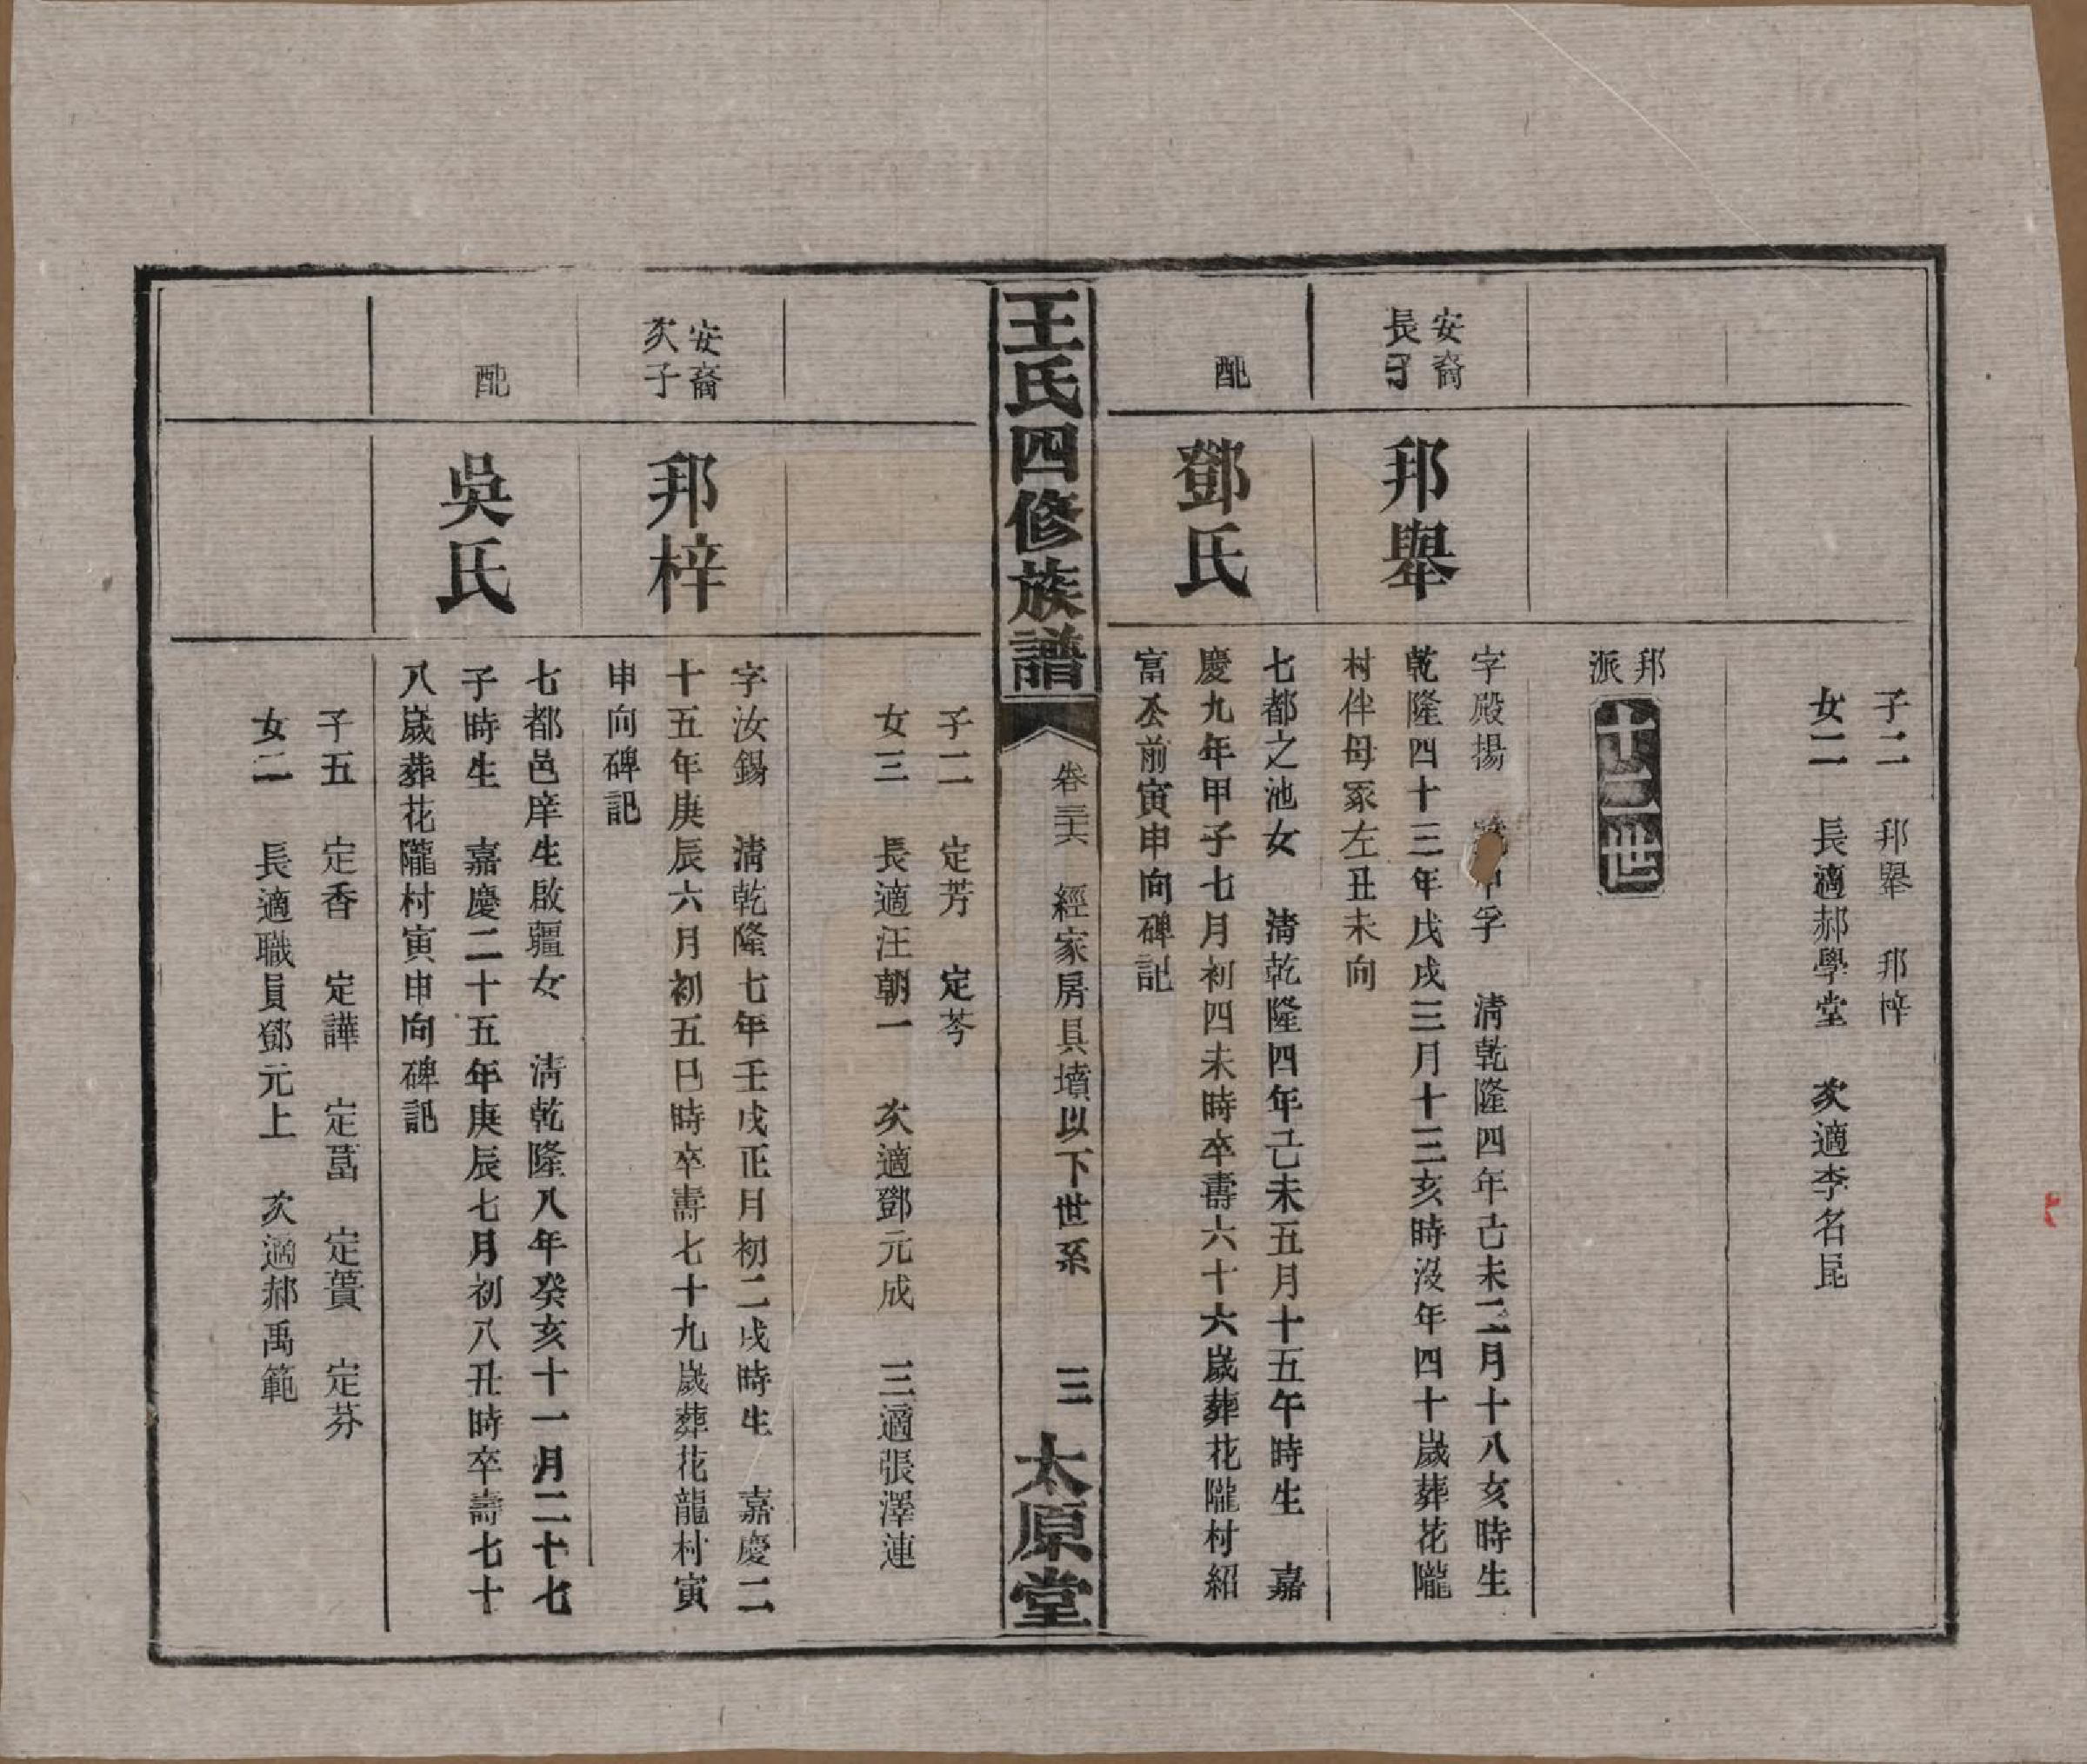 子二　邦舉　邦梓
女二　長適郝學堂　次適李名昆
邦派
十二世
安裔長子
邦舉
字殿揚　孚　清乾隆四年己未二月十八亥時生
乾隆四十三年戊戌三月十三亥時沒年四十歲葬花隴
村伴母冢左丑未向
配
鄧氏
七都之池女　清乾隆四年己未五月十五午時生　嘉
慶九年甲子七月初四未時卒壽六十六歲葬花隴村紹
富公前寅申向碑記
王氏四修族譜
卷三十六　經家房具墳以下世系　三
太原堂
子二　定芳　定芩
女三　長適汪朝一　次適鄧元成　三適張澤連
安裔次子
邦梓
字汝錫　清乾隆七年壬戌正月初二戌時生　嘉慶二
十五年庚辰六月初五巳時卒壽七十九歲葬花龍村寅
申向碑記
配
吳氏
七都邑庠生啟疆女　清乾隆八年癸亥十一月二十七
子時生　嘉慶二十五年庚辰七月初八丑時卒壽七十
八歲葬花隴村寅申向碑記
子五　定香　定譁　定萵　定蕢　定芬
女二　長適職員鄧元上　次適郝禹範